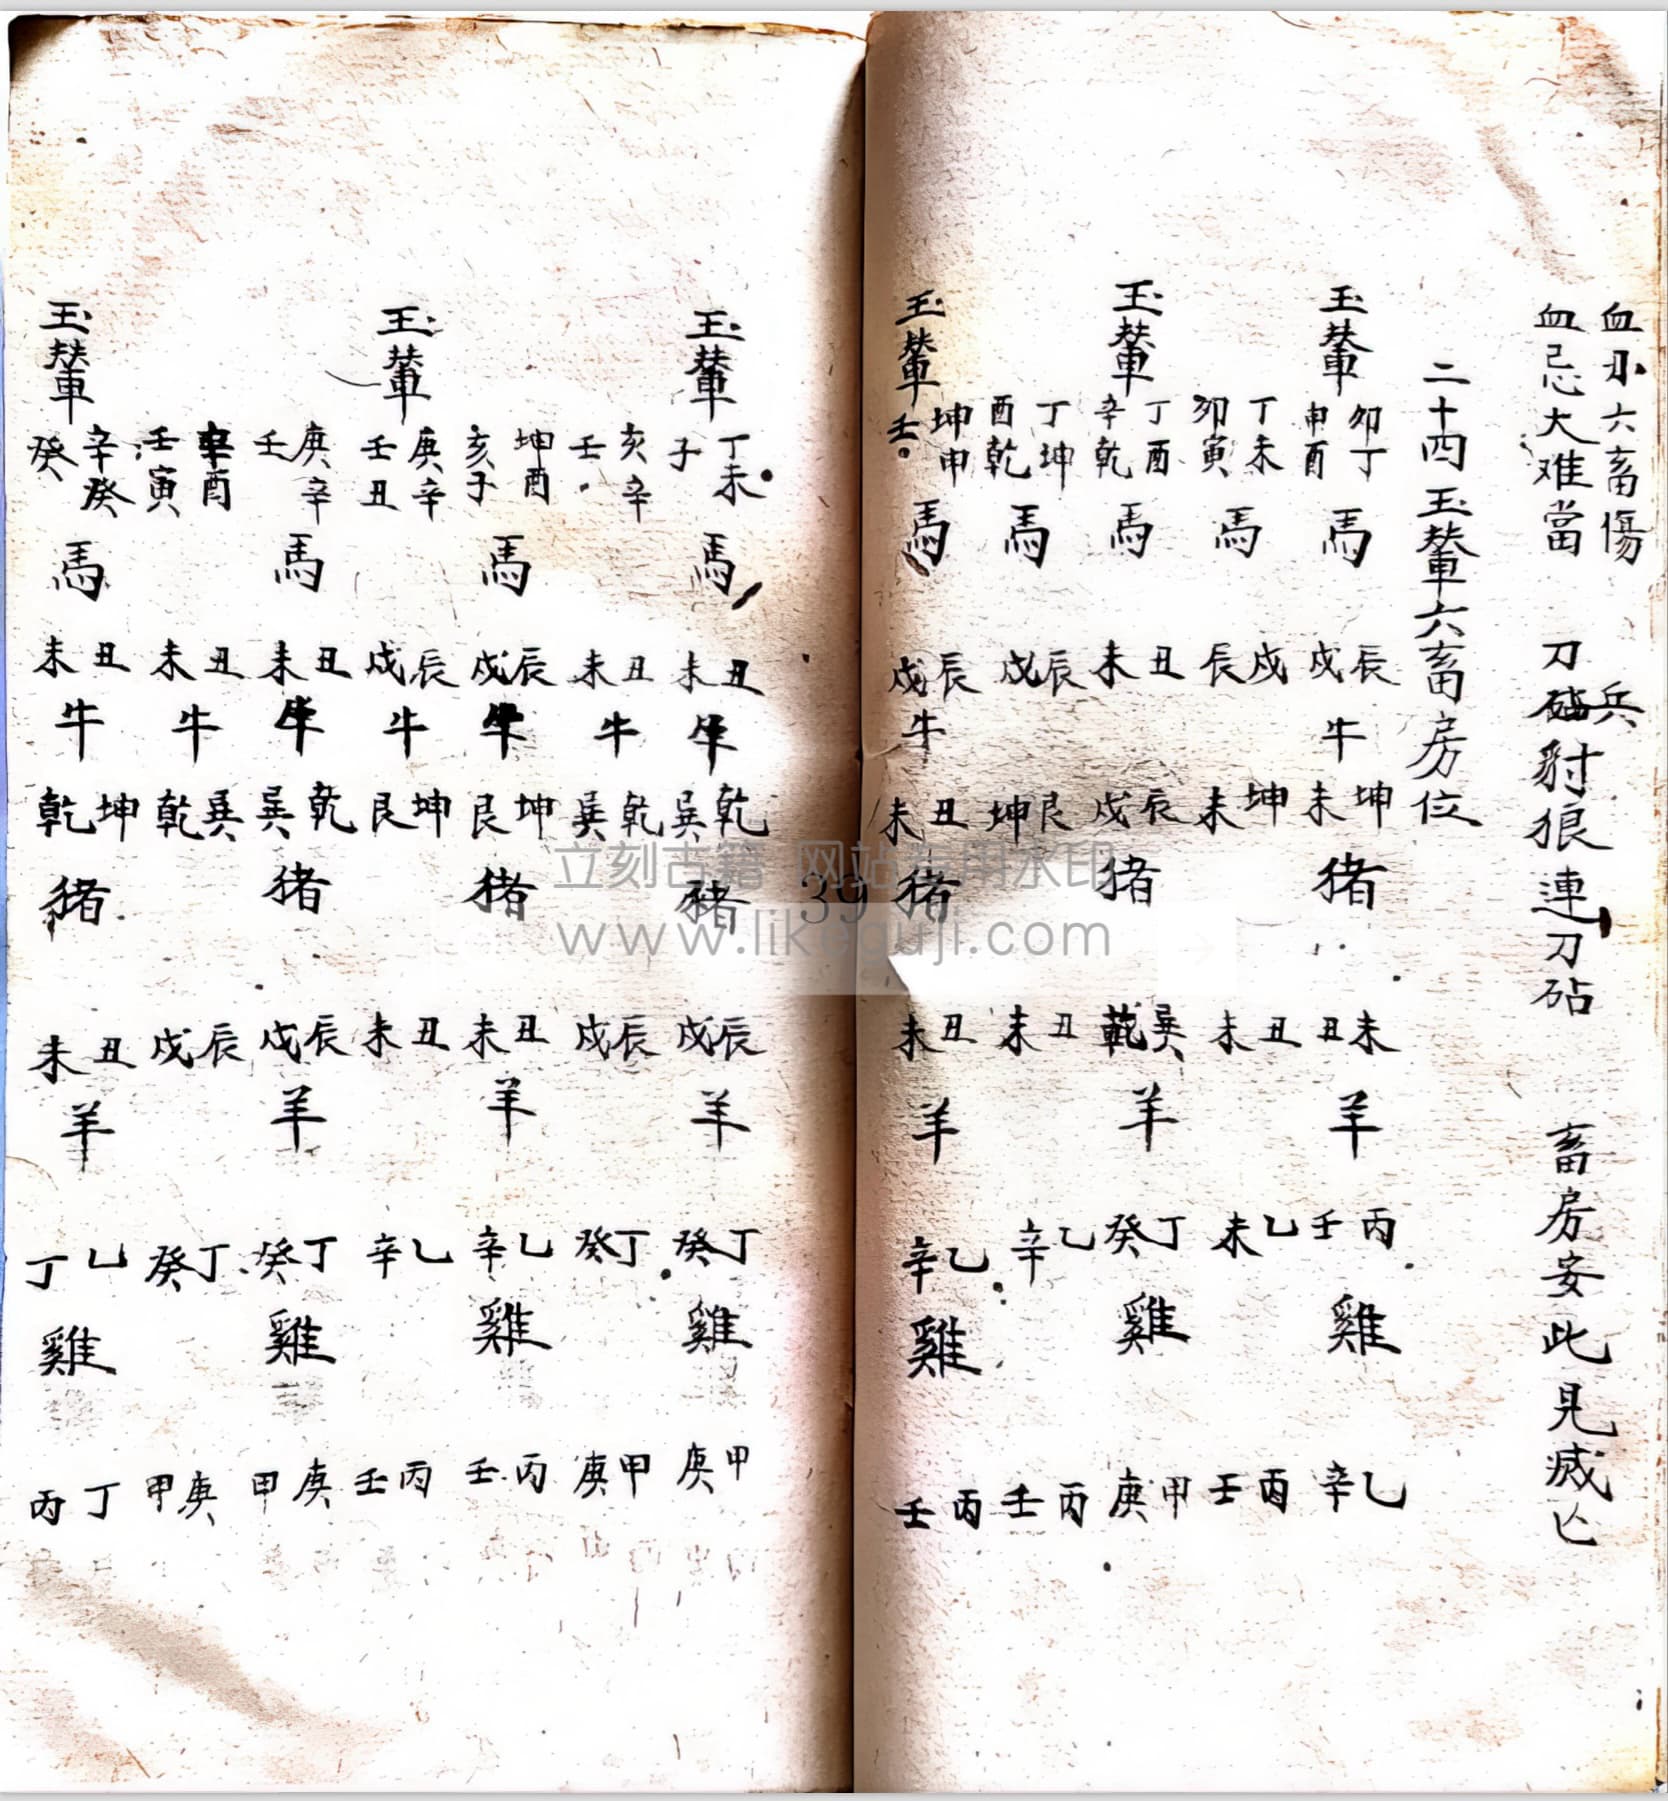 血刃六畜傷 兵
血忌大难當 刀砧豺狼連刀砧 畜房安此見减亡
二十四玉輦六畜房位
玉輦 卯丁申酉 馬 辰戌 牛 坤未 猪 未丑 羊 丙壬 雞 乙辛
丁未卯寅 馬 戌辰 坤未 丑未 乙未 丙壬
玉輦 丁酉辛乾 馬 丑未 辰戌 猪 巽乾 羊 丁癸 雞 甲庚
丁坤酉乾 馬 辰戌 艮坤 丑未 乙辛 丙壬
玉輦 坤申壬 馬 辰戌 牛 丑未 猪 丑未 羊 乙辛 雞 丙壬
玉輦 丁未子 馬 丑未 牛 乾巽 猪 辰戌 羊 丁癸 雞 甲庚
亥辛壬 丑未 牛 乾巽 辰戌 丁癸 甲庚
坤酉亥子 馬 辰戌 牛 坤艮 猪 丑未 羊 乙辛 雞 丙壬
玉輦 庚辛壬丑 辰戌 牛 坤艮 丑未 乙辛 丙壬
庚辛壬 馬 丑未 牛 乾巽 猪 辰戌 羊 丁癸 雞 庚甲
辛酉壬寅 丑未 牛 巽乾 辰戌 丁癸 庚甲
玉輦 辛癸癸 馬 丑未 牛 坤乾 猪 丑未 羊 乙丁 雞 丁丙
立刻古籍 网站专用水印
www.likeguji.com
39